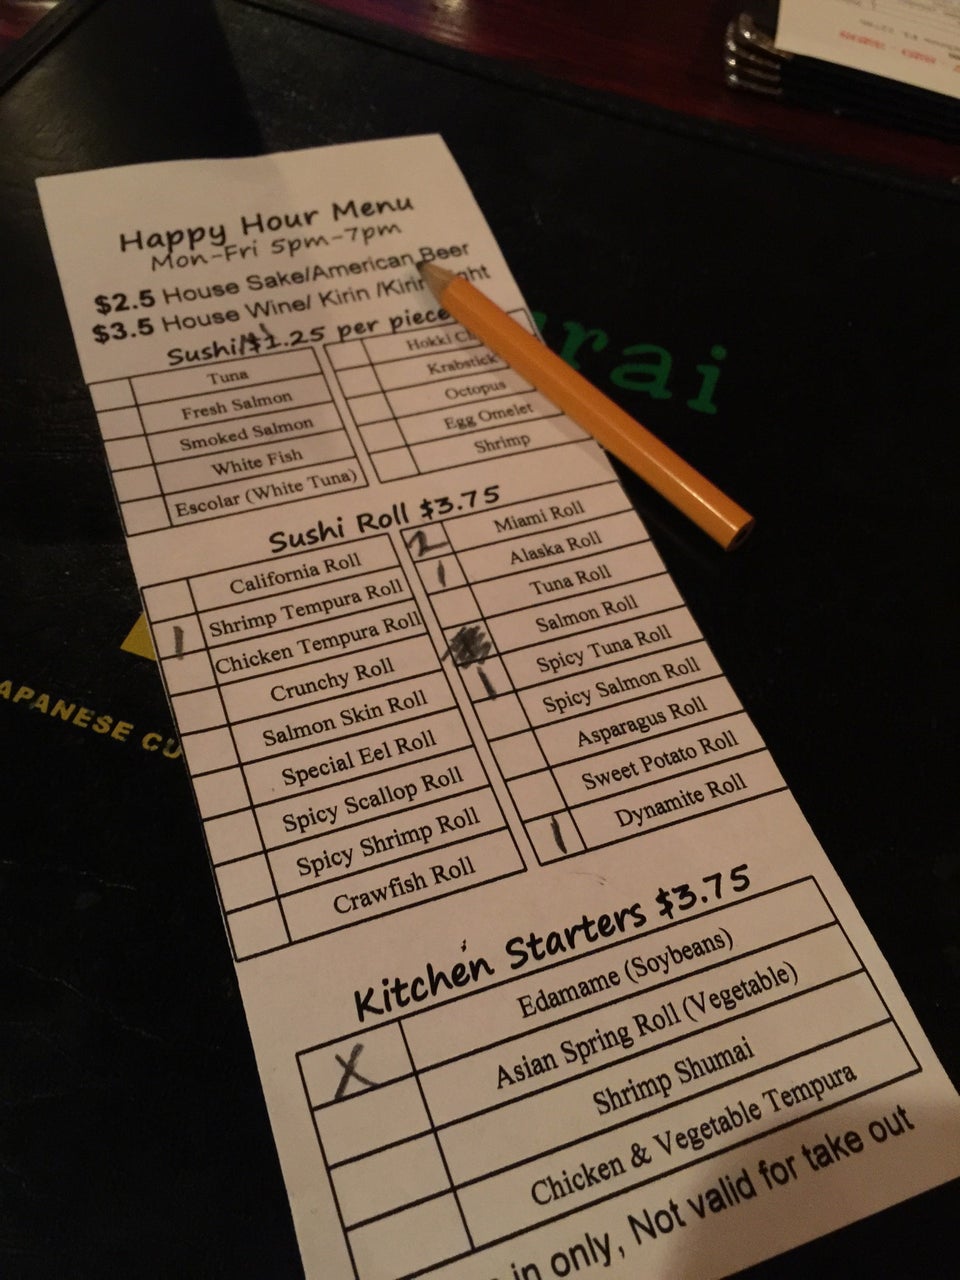 Happy Hour Menu
Mon-Fri 5pm-7pm
$2.5 House Sake/American Beer
$3.5 House Wine/ Kirin /Kirin
Sushi/$1.25 per piece
Tuna
Fresh Salmon
Smoked Salmon
White Fish
Escolar (White Tuna)
Hokki
Krabstick
Octopus
Egg Omelet
Shrimp
Sushi Roll $3.75
California Roll
1 Shrimp Tempura Roll
Chicken Tempura Roll
Crunchy Roll
Salmon Skin Roll
Special Eel Roll
Spicy Scallop Roll
Spicy Shrimp Roll
Crawfish Roll
2 Miami Roll
1 Alaska Roll
Tuna Roll
Salmon Roll
1 Spicy Tuna Roll
Spicy Salmon Roll
Asparagus Roll
Sweet Potato Roll
1 Dynamite Roll
Kitchen Starters $3.75
X Edamame (Soybeans)
Asian Spring Roll (Vegetable)
Shrimp Shumai
Chicken & Vegetable Tempura
in only, Not valid for take out
rai
APANESE CU